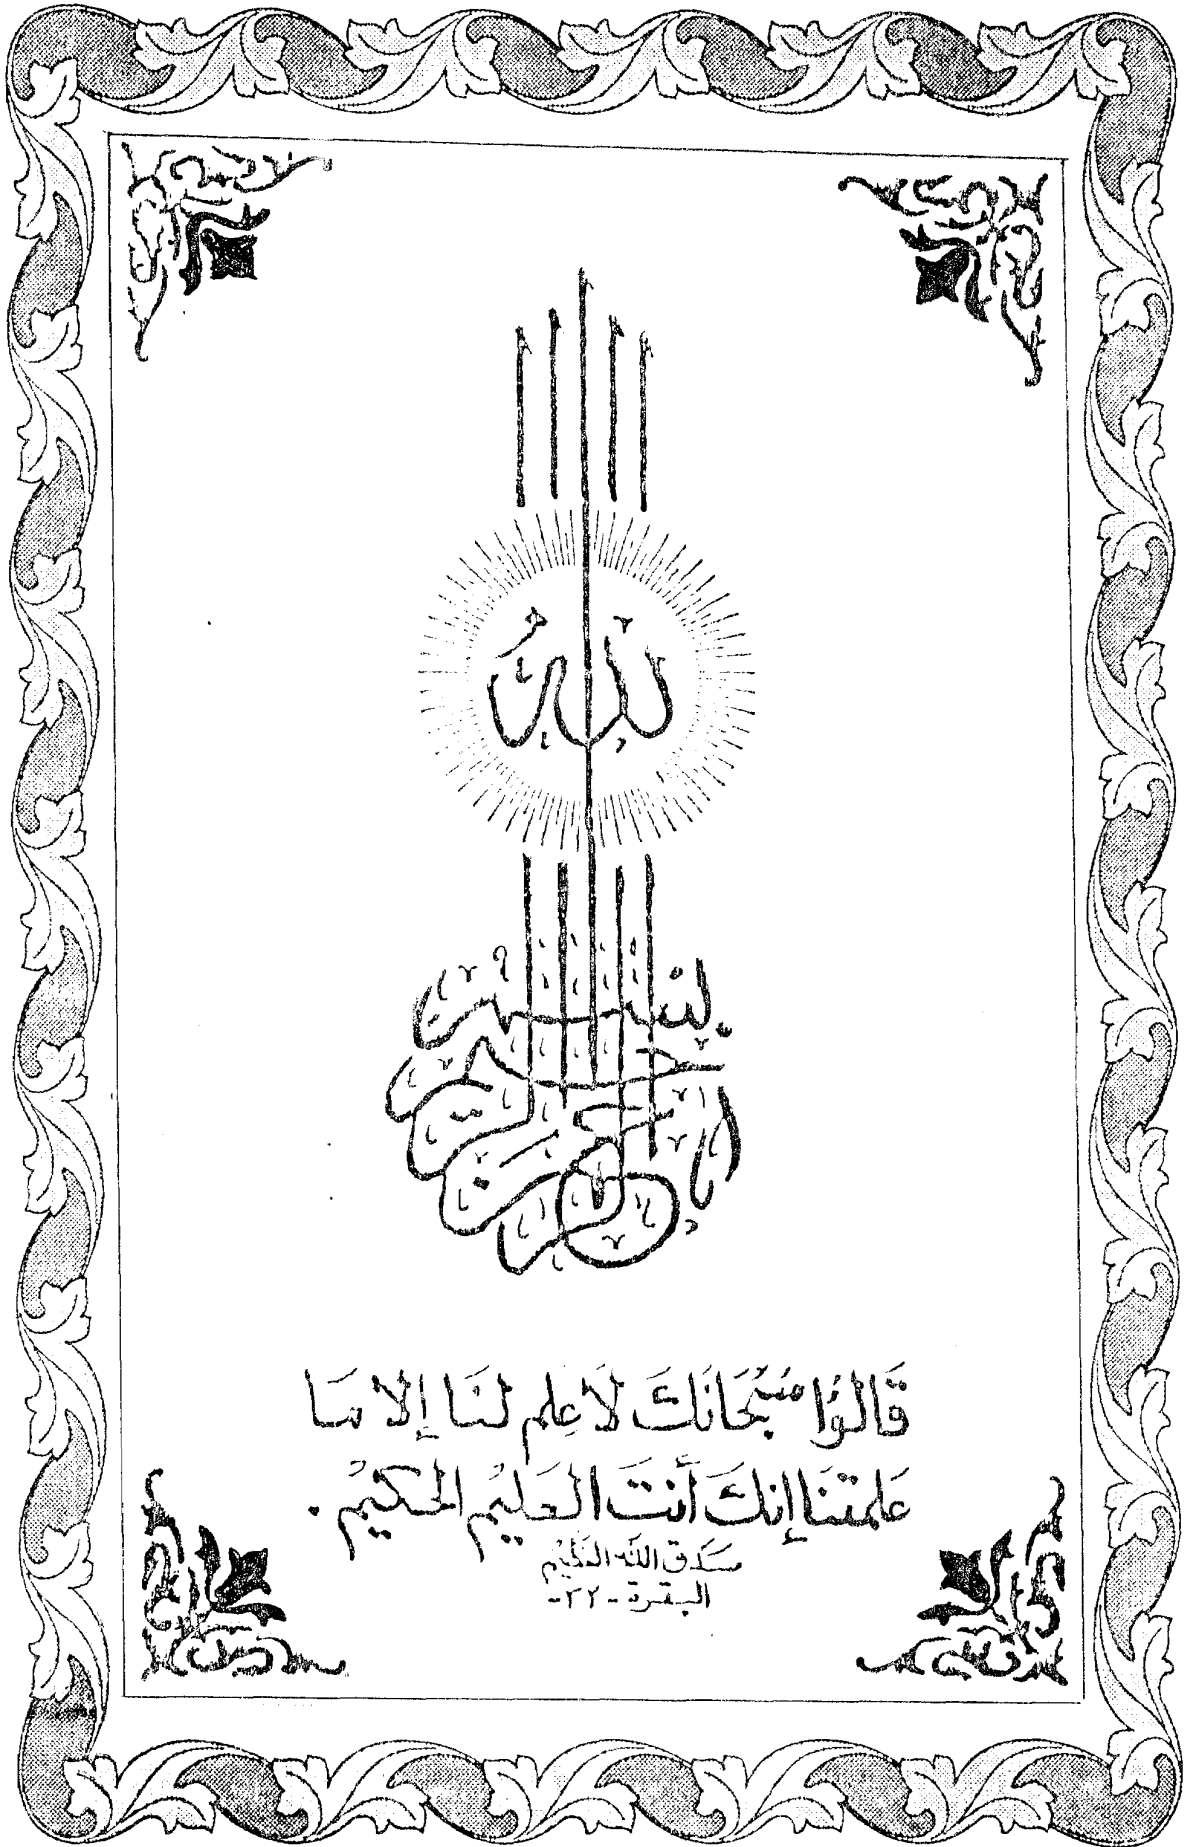 بِسْمِ اللهِ الرَّحْمٰنِ الرَّحِيمِ
قَالُوا سُبْحَانَكَ لَا عِلم لنَا إلا مَا
عَلمتنَا إنكَ أَنتَ العَليمُ الحكيمُ .
صدق الله العظيم
البقرة - ٣٢ -